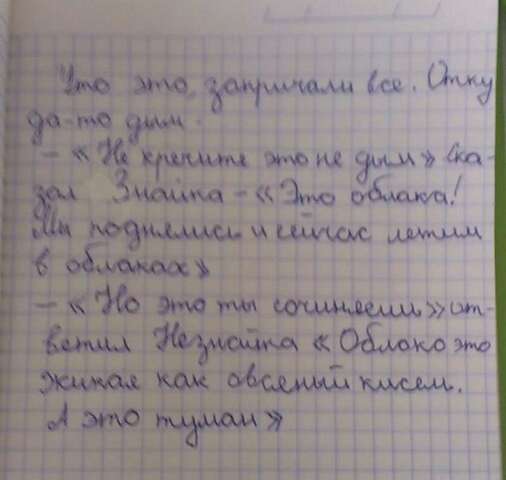 Что это, запричали все. Отку
да-то дым.
- «Не кречите это не дым» ска-
зал Знайка - «Это облака!
Мы поднялись и сейчас летим
в облаках»
- «Но это ты сочиняеш» от-
ветил Незнайка «Облако это
жикая как овсяный кисель.
А это туман»